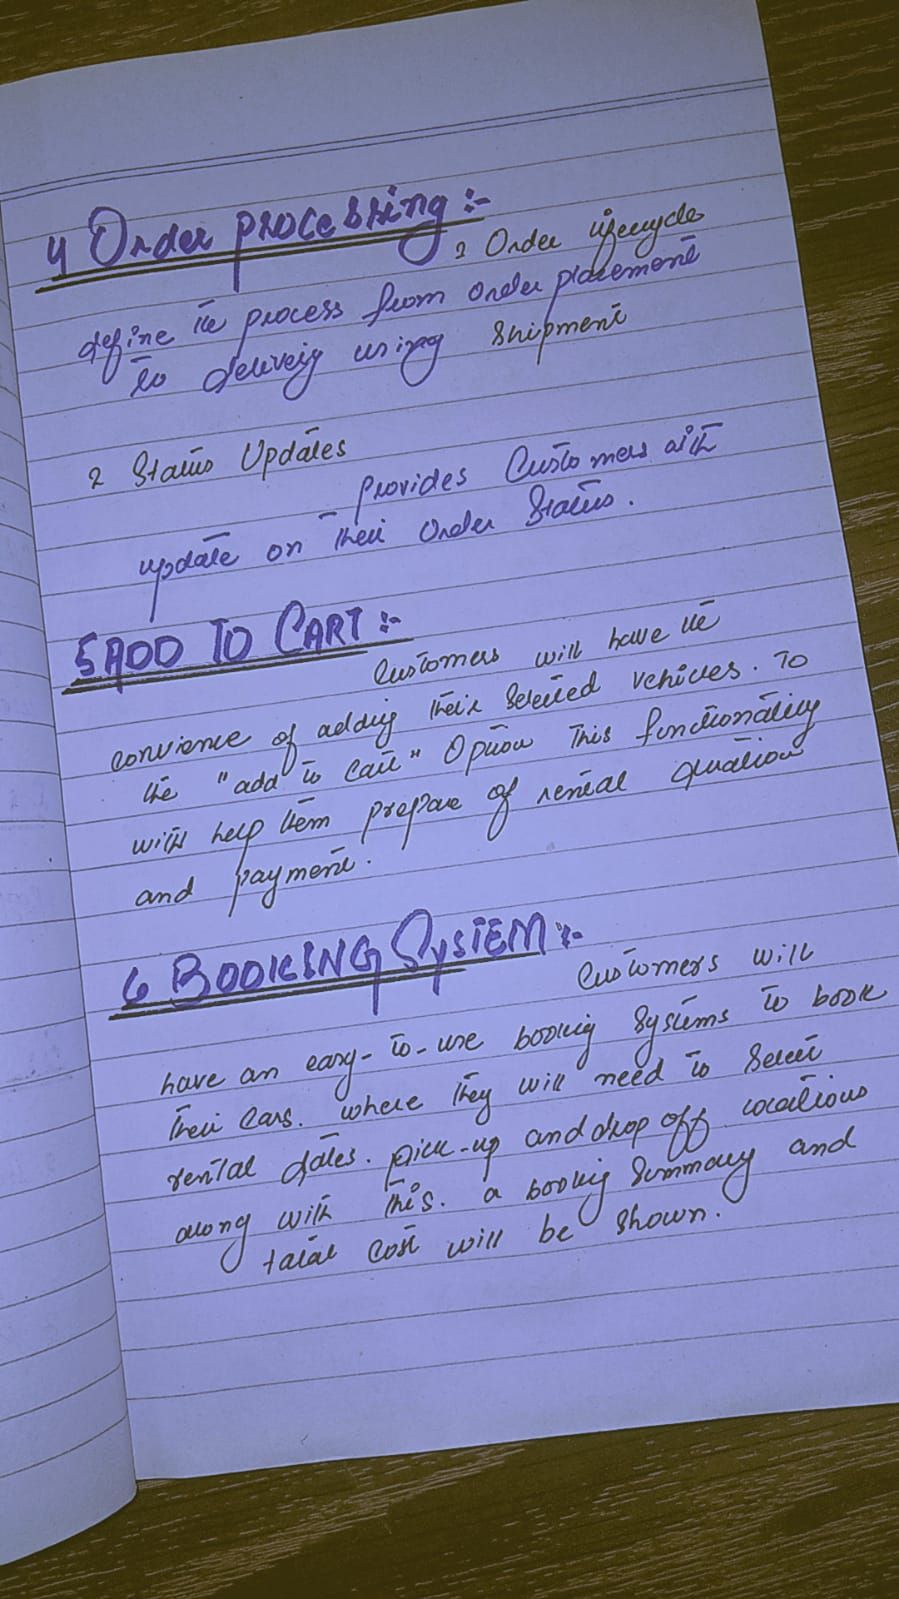 4 Order processing :-
1 Order lifecycle
define the process from order placement
to delivery using shipment
2 Status Updates
provides Customers with
update on their Order Status.
5 ADD TO CART :-
Customers will have the
convience of adding their selected vehicles. To
the "add to cart" Option This functionality
with help them prepare of rental
and payment.
6 BOOKING SYSTEM :-
Customers will
have an easy-to-use booking systems to book
their cars. where they will need to select
rental dates. pick-up and drop off locations
along with this. a booking summary and
total cost will be shown.